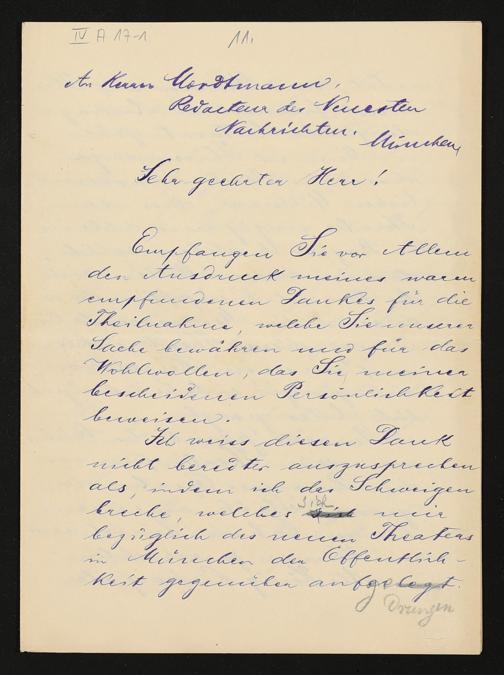 IV A 17-1.
11.
An Herrn Mordtmann,
Redacteur der Neuesten
Nachrichten.
München,
Sehr geehrter Herr!
Empfangen Sie vor Allem
den Ausdruck meines waren
empfundenen Dankes für die
Theilnahme, welche Sie unserer
Sache bewähren und für das
Wohlwollen, das Sie meiner
bescheidenen Persönlichkeit
beweisen.
Ich weiss diesen Dank
nicht beredter auszusprechen
als, indem ich das Schweigen
sich,
breche, welches mir
bezüglich des neuen Theaters
in München der Öffentlich-
keit gegenüber aufgelegt.
Drungen